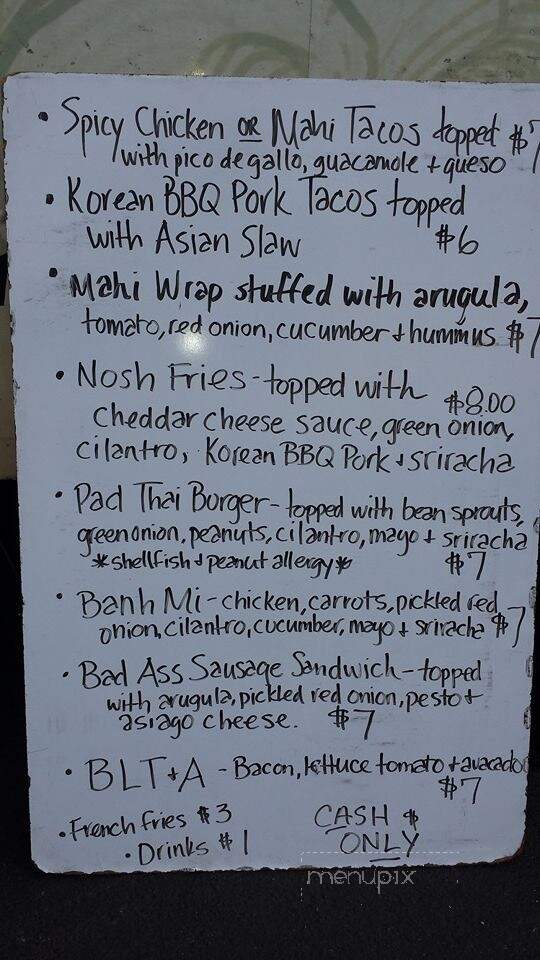 • Spicy Chicken OR Mahi Tacos topped $7
with pico de gallo, guacamole + queso
• Korean BBQ Pork Tacos topped
with Asian Slaw $6
• Mahi Wrap stuffed with arugula,
tomato, red onion, cucumber + hummus $7
• Nosh Fries - topped with $8.00
cheddar cheese sauce, green onion,
cilantro, Korean BBQ Pork + sriracha
• Pad Thai Burger - topped with bean sprouts,
green onion, peanuts, cilantro, mayo + sriracha
*shellfish + peanut allergy* $7
• Banh Mi - chicken, carrots, pickled red
onion, cilantro, cucumber, mayo + sriracha $7
• Bad Ass Sausage Sandwich - topped
with arugula, pickled red onion, pesto +
asiago cheese. $7
• BLT+A - Bacon, lettuce tomato + avacado
$7
• French fries $3 CASH $
• Drinks $1 ONLY
menupix